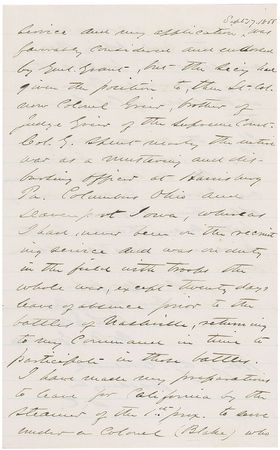 Sept 27, 1865
service and my application, was
favorably considered and endorsed
by Genl. Grant, but the Secy had
given the position to, then Lt-Col.
now Colonel Grier, brother of
Judge Grier of the Supreme Court.
Col. G. spent nearly the entire
war as a mustering and dis-
bursing officer at Harrisburg
Pa. Columbus Ohio and
Davenport Iowa, whereas
I had never been on the recruit-
ing service and was on duty
in the field with troops the
whole war, except twenty days
leave of absence prior to the
battles of Nashville, returning
to my Command in time to
participate in those battles.
I have made my preparations
to leave for California by the
Steamer of the 1st prox. to serve
under a Colonel (Blake) who